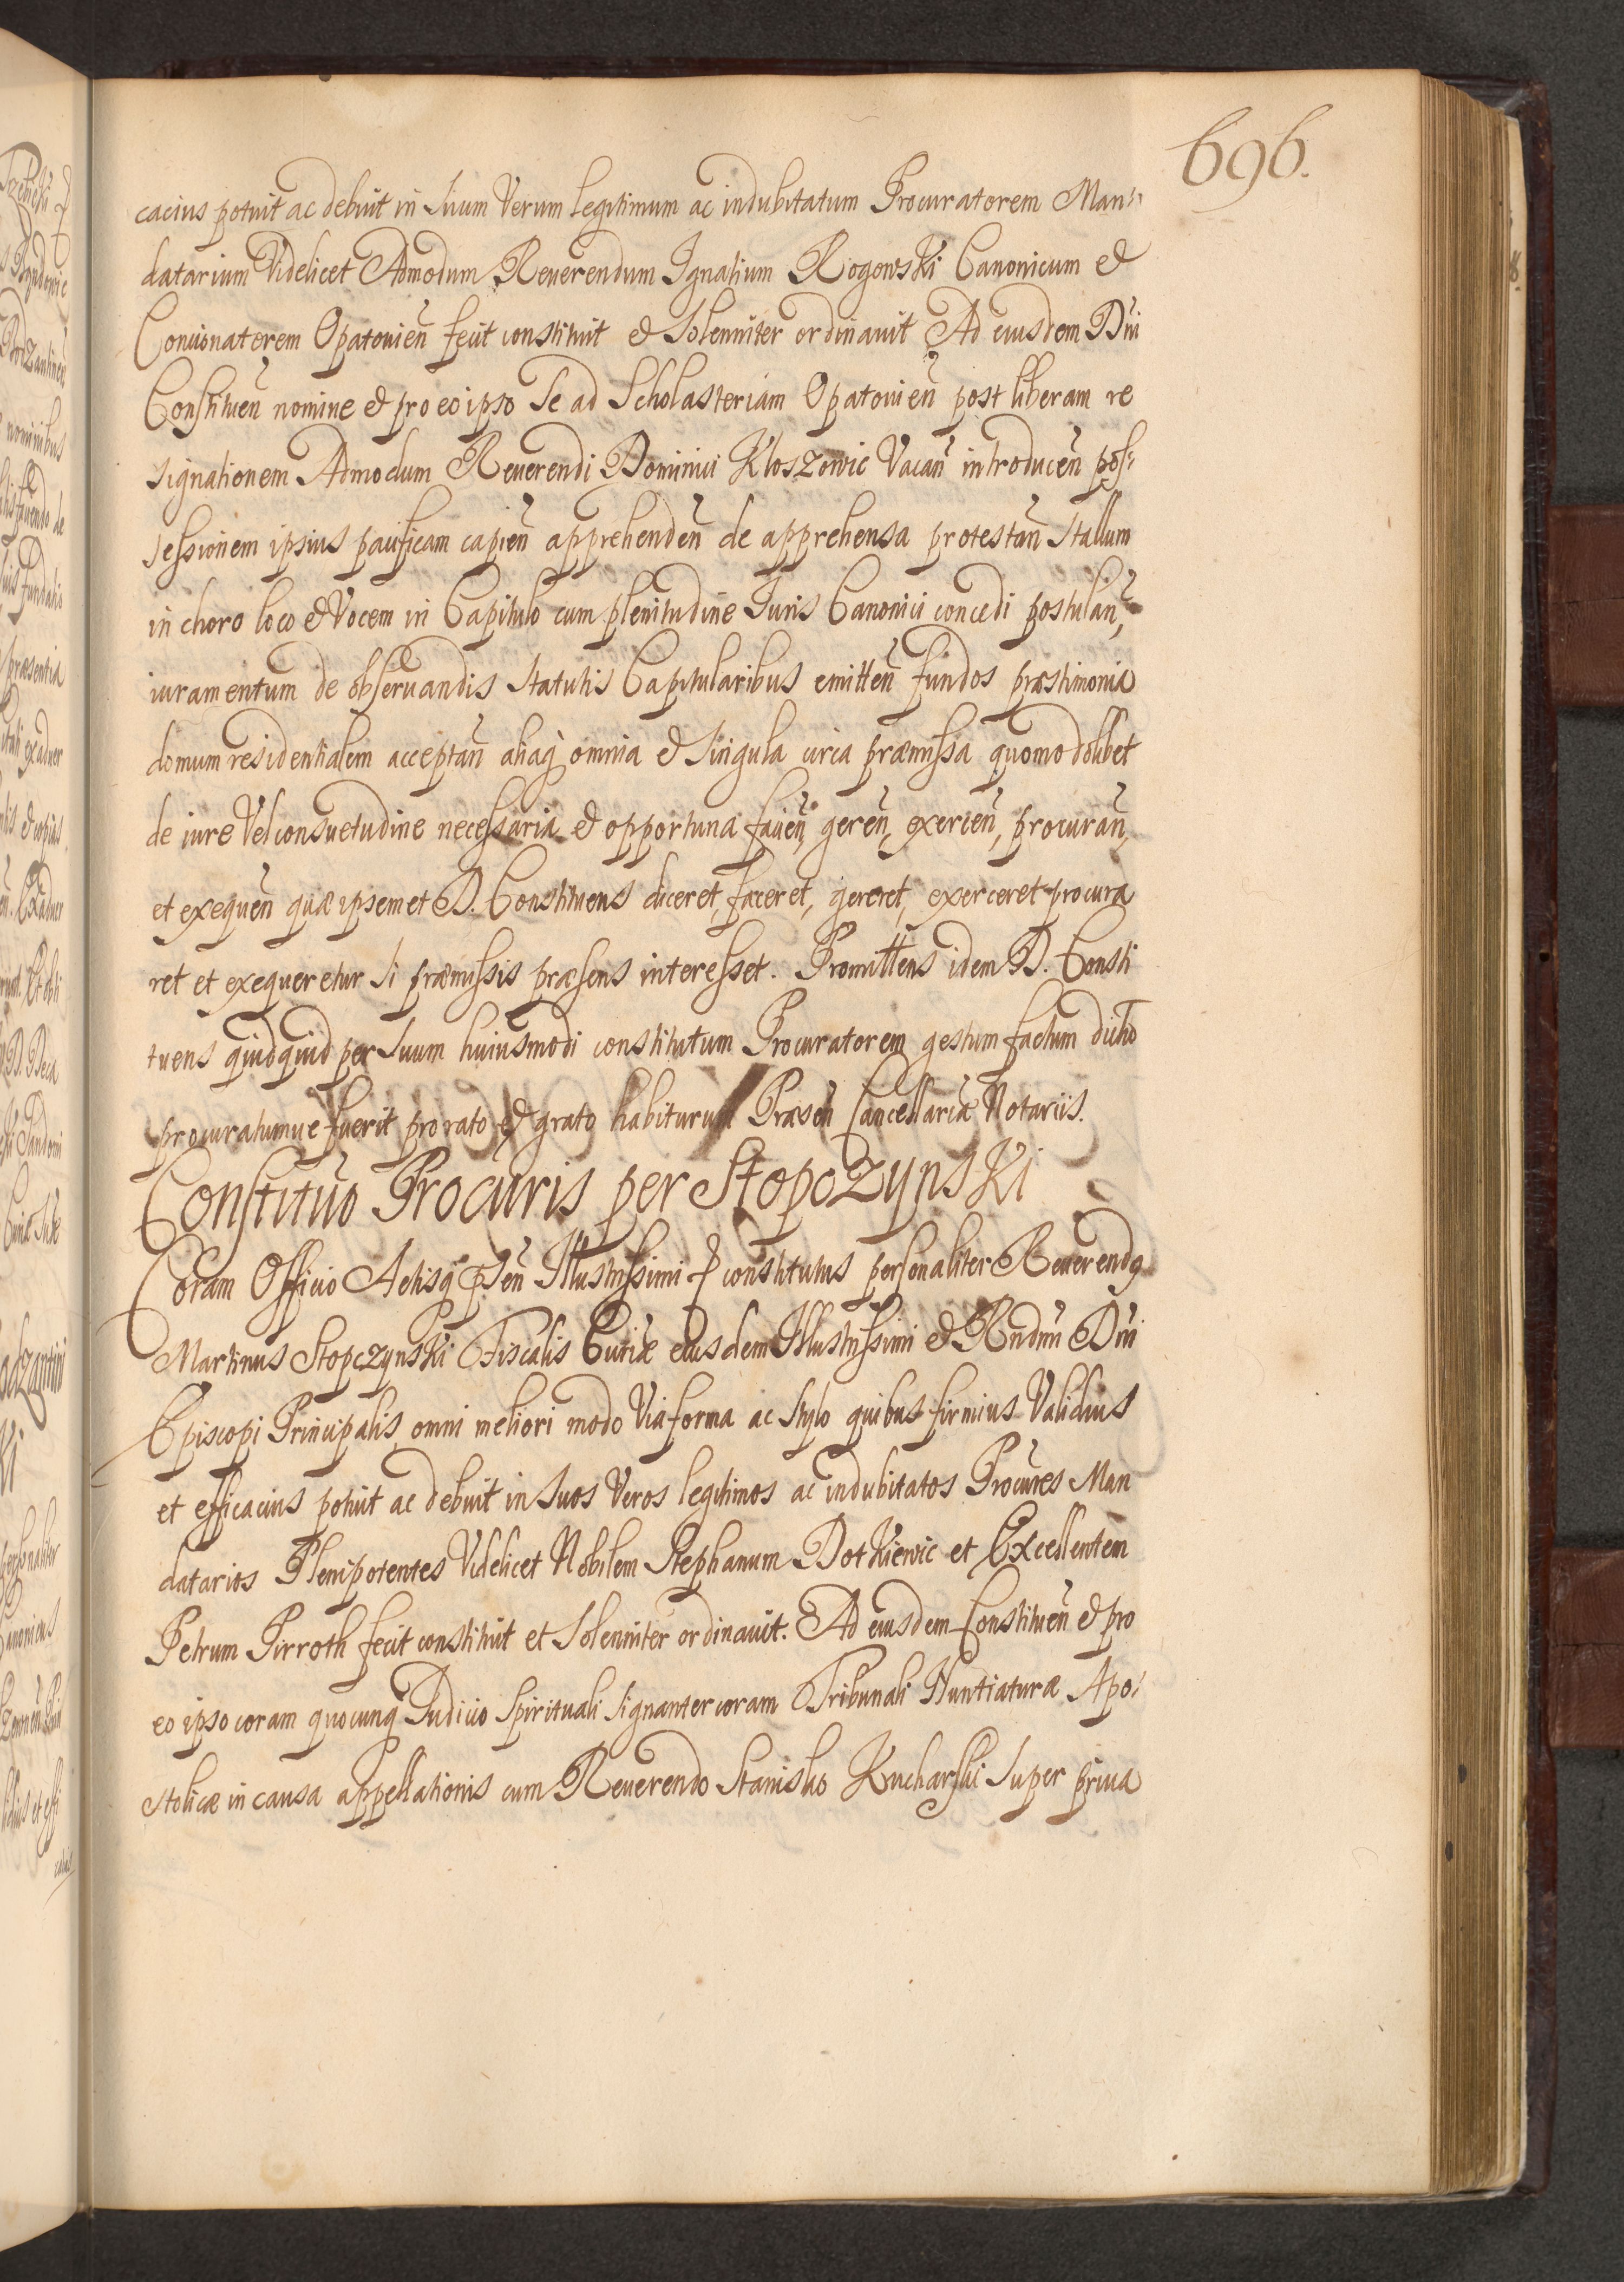 696.
cacius potuit ac debuit in suum Verum legitimum ac indubitatum Procuratorem Man-
datarium Videlicet Admodum Reuerendum Ignatium Rogowski Canonicum et
Concionatorem Opatouien̄ fecit constituit et solenniter ordinauit Ad eiusdem Dni
Constituen̄ nomine et pro eo ipso se ad Scholasteriam Opatouien̄ post liberam re
signationem Admodum Reuerendi Dominici Kloszowic Vacan̄ introducen̄ pos-
sessionem ipsius pacificam capien̄ apprehenden̄ de apprehensa protestan̄ stallum
in choro loco et Vocem in Capitulo cum plenitudine Iuris Canonici concedi postulan̄,
iuramentum de obseruandis statutis Capitularibus emitten̄ fundos præstimonia
domum residentialem acceptan̄ aliaq̨ omnia et singula circa præmissa quomodolibet
de iure Vel consuetudine necessaria et opportuna facien̄, geren̄, exercen̄, procuran̄,
et exequen̄ quæ ipsemet D. Constituens diceret, faceret, gereret, exerceret procura
ret et exequeretur si præmissis præsens interesset. Promittens idem D. Consti
tuens quidquid per suum huiusmodi constitutum Procuratorem gestum factum dictũ
procuratumue fuerit pro rato et grato habiturum Præsen̄ Cancellariæ Notariis.
Constituo Procuris per Stopczynski
Coram Officio Actisq̨ pn̄sen̄ Illustrissimi & constitutus personaliter Reuerendg
Martinus Stopczynski Fiscalis Curiæ eiusdem Illustrissimi et Rndmi Dni
Episcopi Principalis omni meliori modo Via forma ac stylo quibus firmius Validius
et efficacius potuit ac debuit in suos Veros legitimos ac indubitatos Procures Man
datarios Plenipotentes Videlicet Nobilem Stephanum Dotkiewic et Excellentem
Petrum Pirroth fecit constituit et solenniter ordinauit. Ad eiusdem Constituen̄ et pro
eo ipso coram quocunq̨ Iudicio spirituali signanter coram Tribunali Nuntiaturæ Apo-
stolicæ in causa appellationis cum Reuerendo Stanislao Kucharski super priua